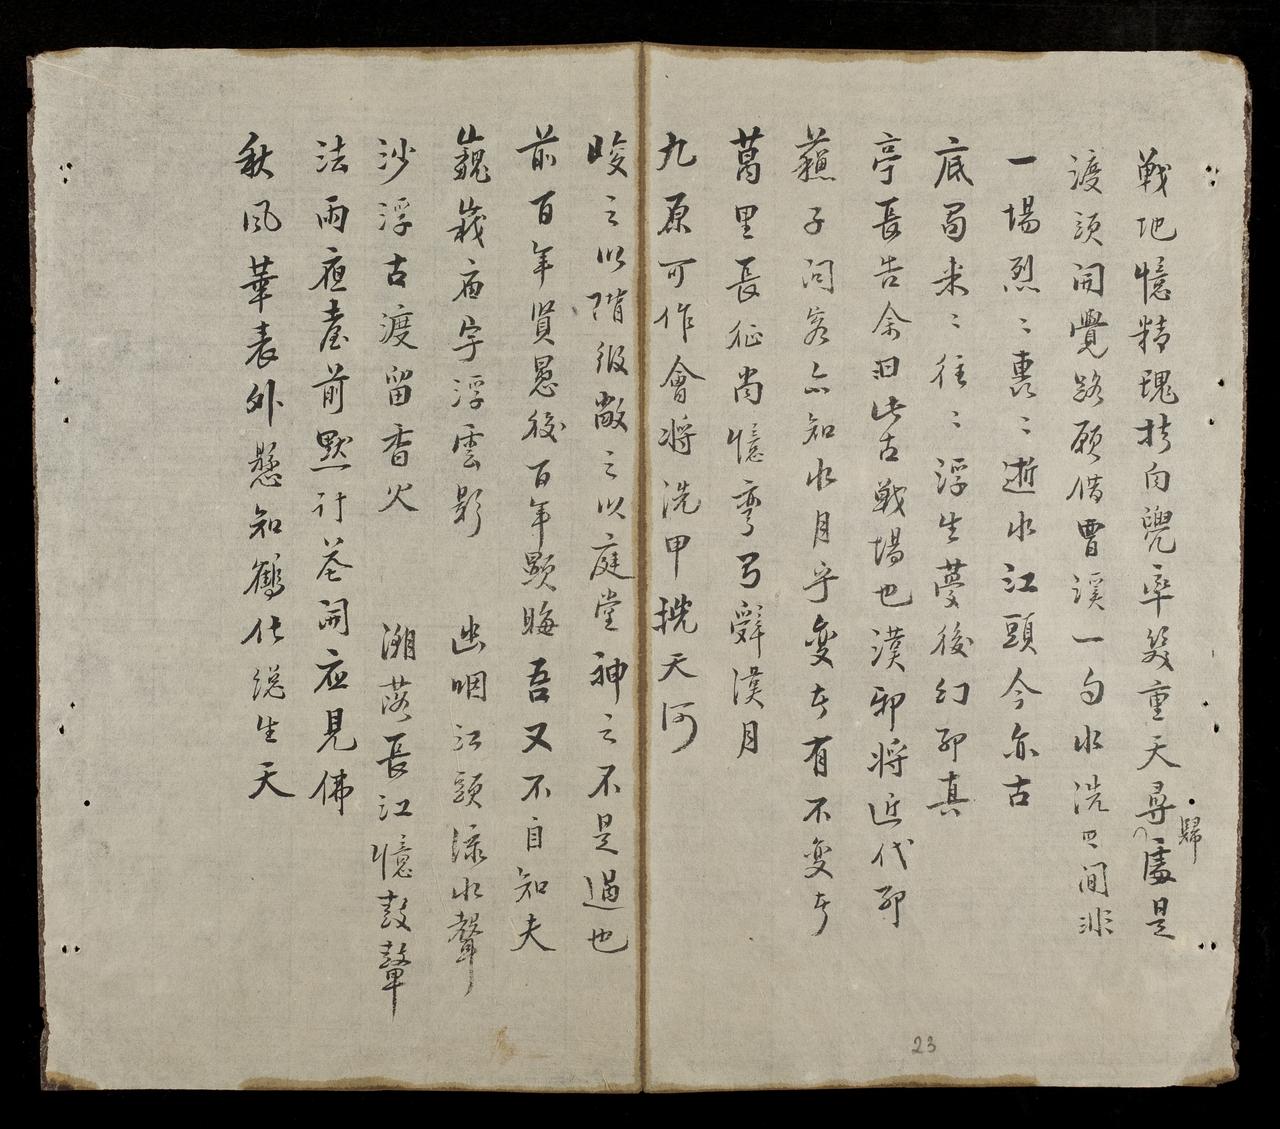 戰地憶精瑰扵向兠率幾重天尋歸處是
渡頭開覺路願借曹溪一勺水洗間非
一場烈〻轟〻逝水江頭今亦古
底局来〻往〻浮生夢後幻耶真
亭長告余曰此古戰場也漢耶將近代耶
蘓子问客亦知水月乎變者有不變者
萬里長征尚憶彎弓辭漢月
九原可作會將洗甲挽天河
峻之以階級敞之以庭堂神之不是過也
前百年賢愚後百年顯晦吾又不自知夫
巍峩宙宇浮雲影 幽咽江頭渌水聲
沙浮古渡留香火 潮落長江憶鼓鼙
法雨夜臺前默計花開应見佛
秋風華表外懸知鶴化總生天
23